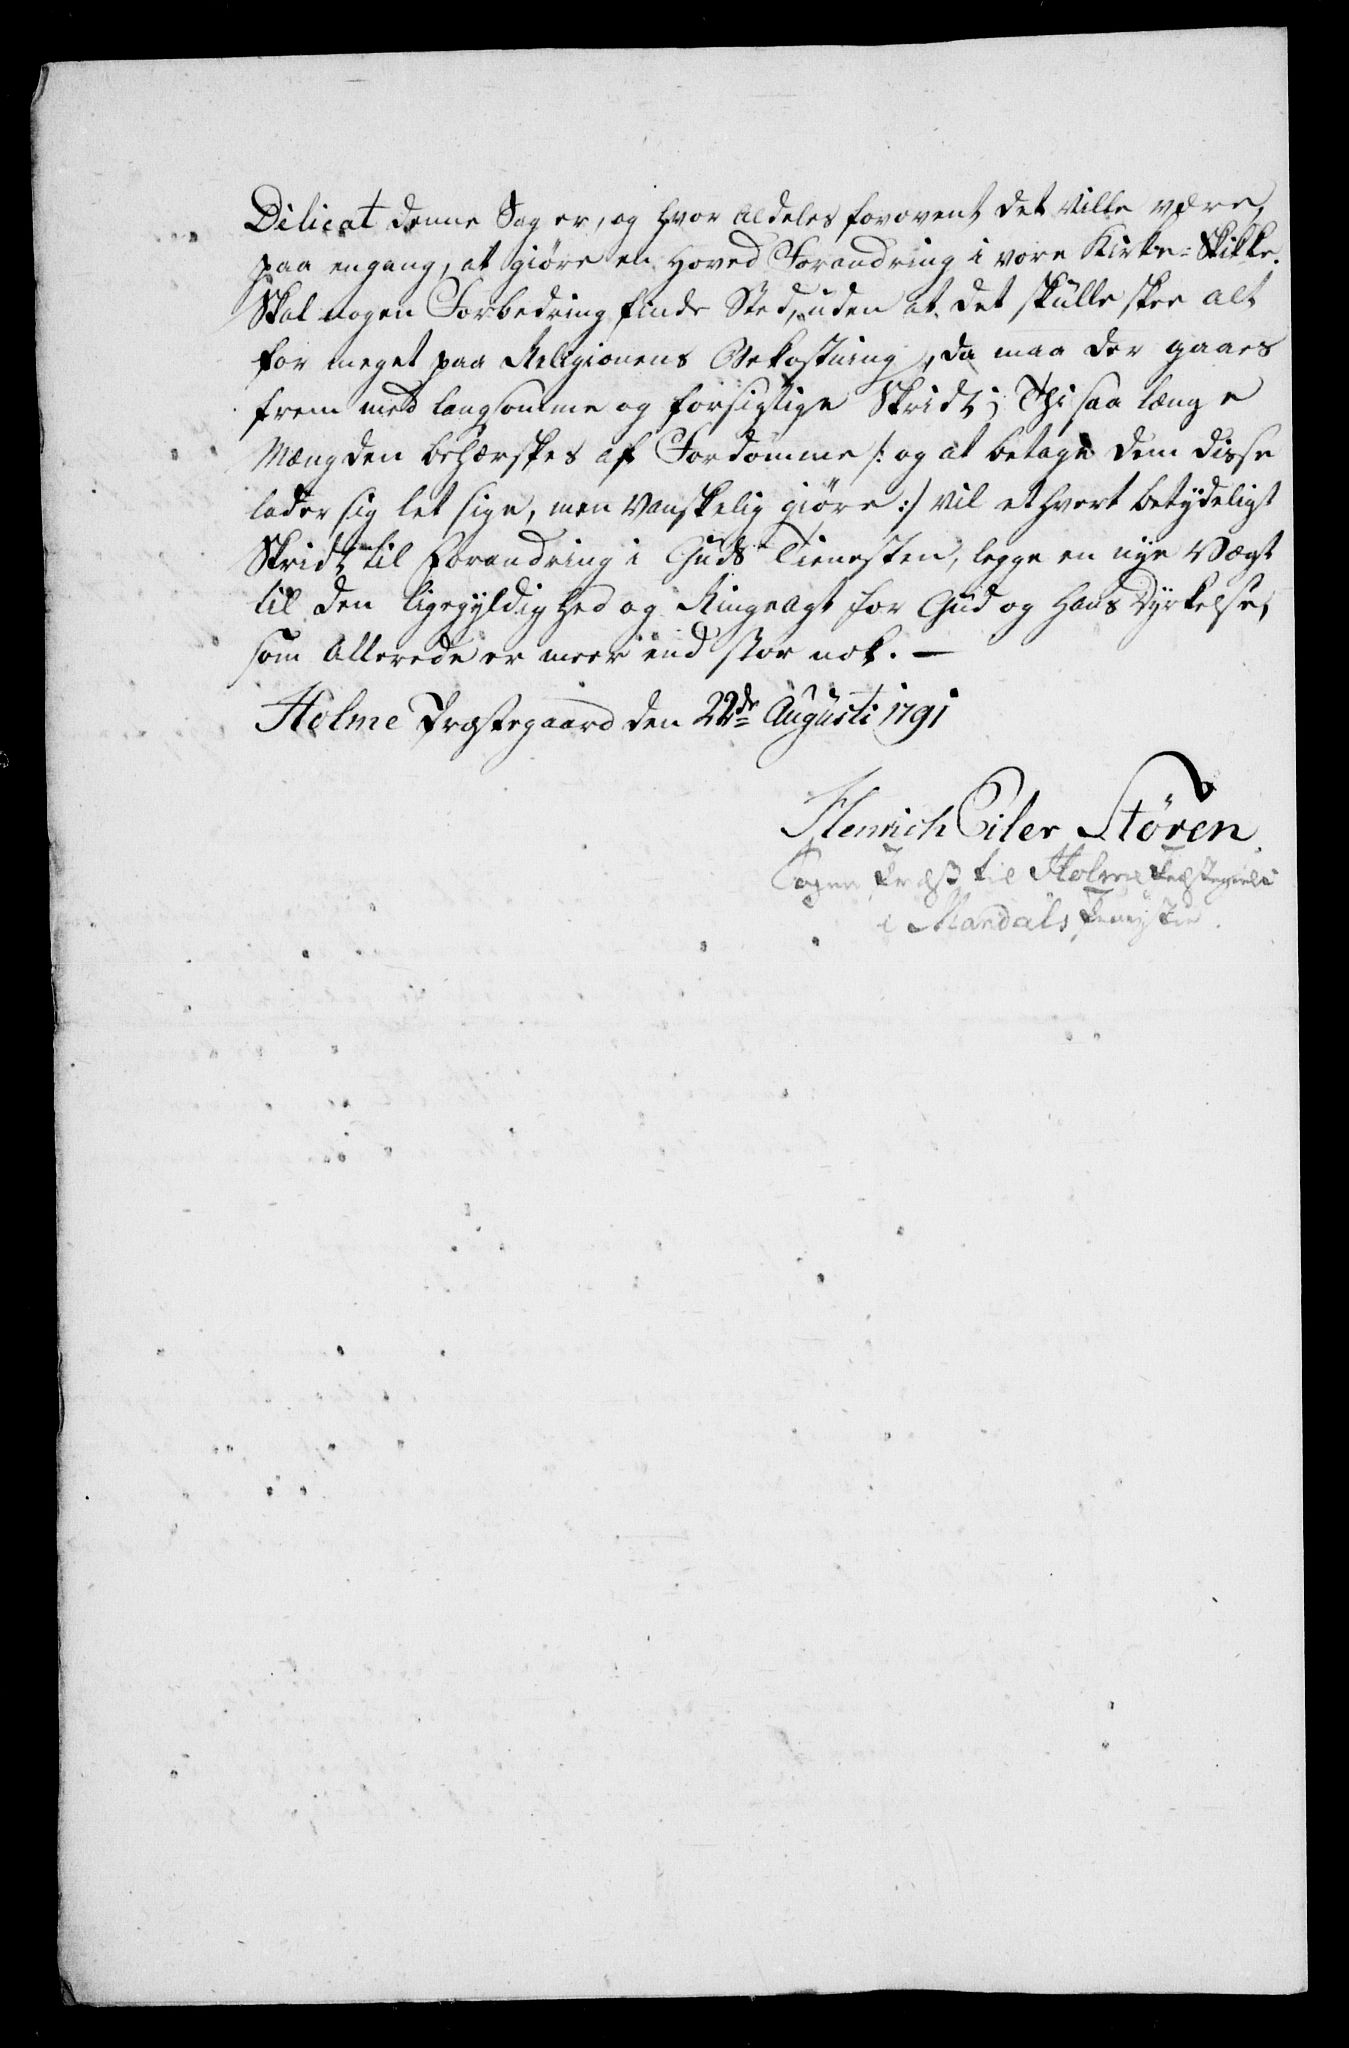 Dilicat denne Sag er, og hvor aldeles forovent det ville være,
paa engang, at giøre en Hoved Forandring i vore Kirke-Skikke.
Skal nogen Forbedring finde Sted, uden at det skülle skee alt
for meget paa Religionens Bekostning, da maa der gaaes
frem med langsomme og forsigtige Skridt; Thi saa længe
Mængden behærskes af Fordomme /: og at betage dem disse
lader sig let sige, men vanskelig giøre :/ vil ethvert betydeligt
Skridt til Forandring i Guds Tienesten, legge en nye Vægt
til den ligegyldighed og Ringeagt for Gud og Hans Dyrkelse,
som allerede er meer end stor nok. —
Holme Præstegaard den 22de Augusti 1791
Henrich Eiler Stören
Sogne Præst til Holme Præstegield
i Mandals Provstie.